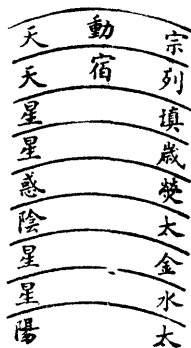 宗動天
列宿天
填星
歳星
熒惑
太陰
金星
水星
太陽